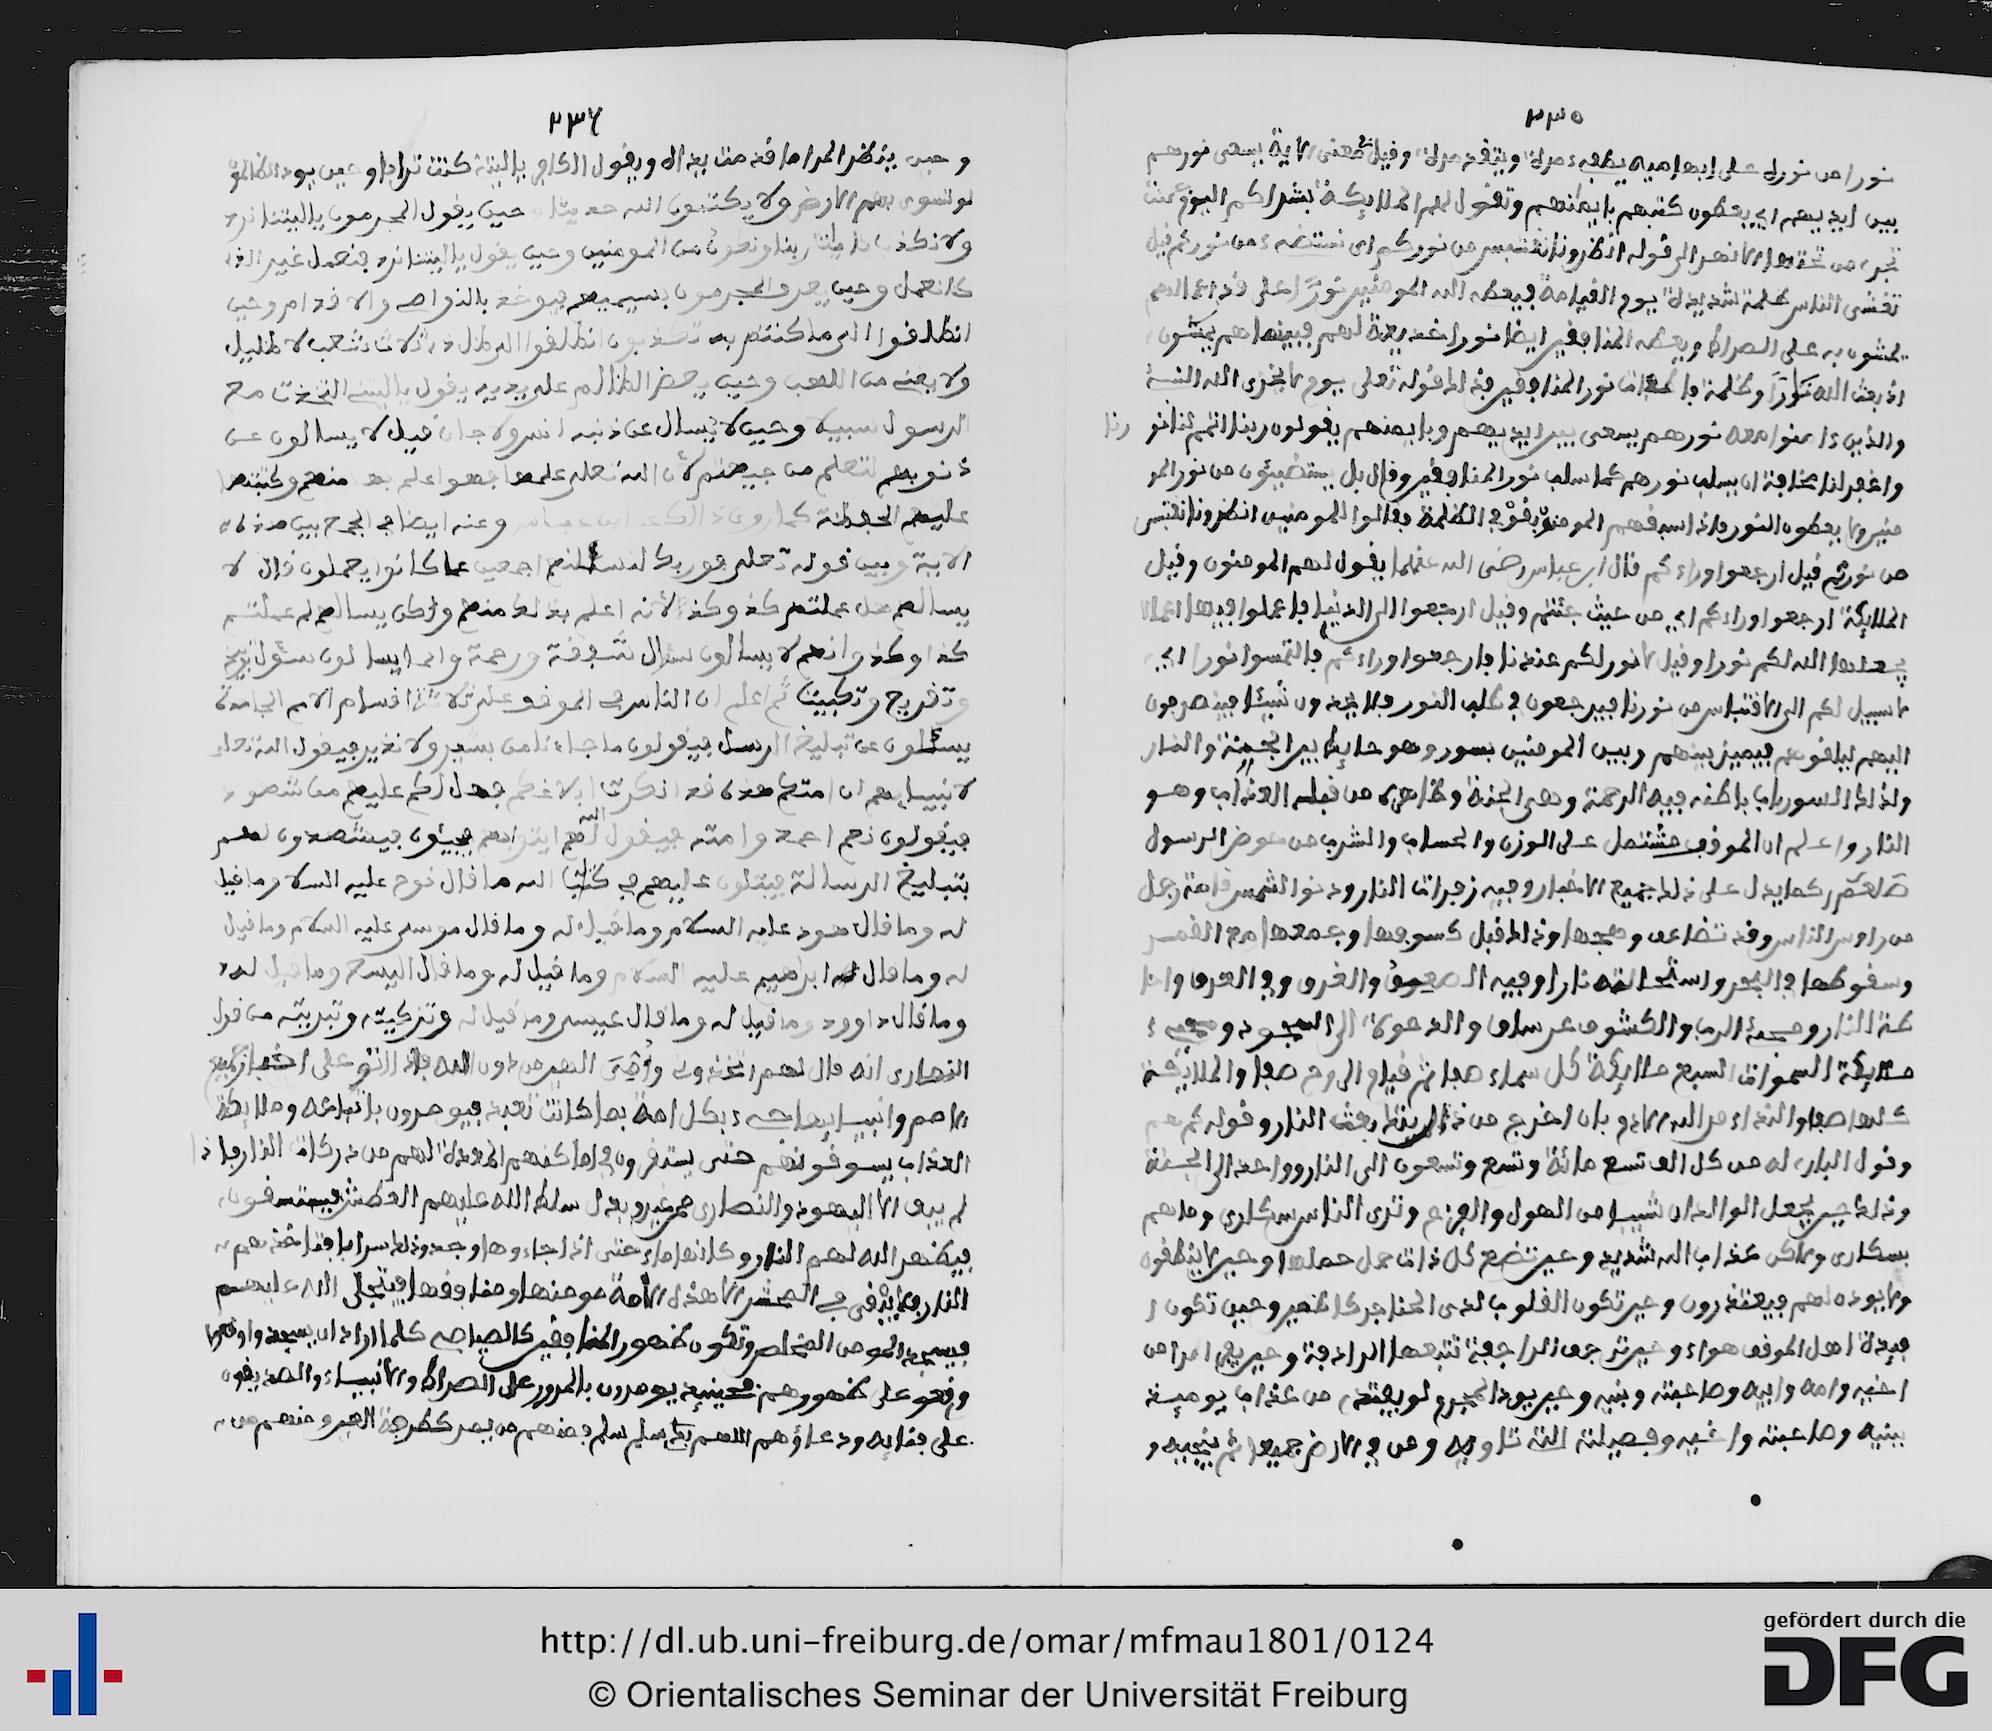 ٢٣٥
نورا من نوره على ابهاميه يطفى مرة ويتقد مرة وقيل معنى الاية يسعى نورهم
بين ايديهم اي يعطون كتبهم بايمانهم وتقول لهم الملايكة بشراكم اليوم جنت
تجري من تحتها الانهر الى قوله انظرونا نقتبس من نوركم اي نستضيء من نوركم قيل
تغشى الناس ظلمة شديدة يوم القيامة فيعطي الله المومنين نورا على قدر اعمالهم
يمشون به على الصراط ويعطي المنافقين ايضا نورا خديعة لهم فبينما هم يمشون
اذ بعث الله وظلمة نور المنافقين فذلك قوله تعلى يوم لا يخزى الله النبيء
والذين ءامنوا معه نورهم يسعى بين ايديهم وبايمنهم يقولون ربنا اتمم لنا نو رنا
واغفر لنا مخافة ان يسلب نورهم كما سلب نور المنافقين وقال بل يستضيئون من نور المو
منين ولا يعطون النور فاذا سبقهم المومنون بقوا في الظلمة فقالوا للمومنين انظرونا نقتبس
من نوركم قيل ارجعوا وراءكم قال ابن عباس رضى الله عنهما يقول لهم المومنون وقيل
الملايكة ارجعوا وراءكم اي من حيث جئتم وقيل ارجعوا الى الدنيا فاعملوا فيها اعمالا
يجعلها الله لكم نورا وقيل لا نور لكم عندنا فارجعوا وراءكم فالتمسوا نورا اي
لا سبيل لكم الى الاقتباس من نورنا فيرجعون في طلب النور فلا يجدون شيئا فينصرفون
اليهم ليلقوهم فيميز بينهم وبين المومنين بسور وهو حايط بين الجنة والنار
ولذلك السور باب باطنه فيه الرحمة وهى الجنة وظاهره من قبله العذاب وهو
النار واعلم ان الموقف مشتمل على الوزن والحساب والشرب من حوض الرسول
كما يدل على ذلك جميع الاخبار وفيه زفرات النار ودنو الشمس قامة رجل
من راوس الناس وقد تضاعف وهجها وذلك قبل كسوفها وجمعها مع القمر
وسقوطها في البحر واستحالته نارا وفيه الصعوق والغرق وفي العرق واحا
طة النار ومجيء الرب والكشوف عن ساق والدعوة الى السجود ومجيء
ملايكة السموات السبع ملايكة كل سماء صفا ثم قيام الروح صفا والملايكة
كلها صفا والنداء من الله لادم بان اخرج من ذريتك بعث النار وقوله كم هم
وقول الباري له من كل الف تسع مائة وتسع وتسعون الى النار وواحد الى الجنة
وذلك حين يجعل الوالدان شيبا من الهول والفزع وترى الناس سكارى وما هم
بسكارى ولاكن عذاب الله شديد وحين تضع كل ذات حمل حملها وحين لا ينطقون
ولا يوذن لهم فيعتذرون وحين تكون القلوب لدى الحناجر كاظمين وحين تكون ا
فيدة اهل الموقف هواء وحين ترجف الراجفة تتبعها الرادفة وحين يفر المرء من
اخيه وامه وابيه وصاحبته وبنيه وحين يود المجرم لو يفتدي من عذاب يوميذ
ببنيه وصاحبته واخيه وفصيلته التي تاويه ومن في الارض جميعا ثم ينجيه و
٢٣٦
وحين ينظر المرء ما قدمت يداه ويقول الكافر ياليتني كنت ترابا وحين يود الظالمو
لو تسوى بهم الارض ولا يكتمون الله حديثا وحين يقول المجرمون ياليتنا نرد
ولا نكذب بايات ربنا ونكون من المومنين وحين يقول ياليتنا نرد فنعمل غير الذي
كنا نعمل وحين يعرف المجرمون بسيميهم فيوخذ بالنواصي والاقدام وحين
انطلقوا الى ما كنتم به تكذبون انطلقوا الى ظل ذي ثلاث شعب لا ظليل
ولا يغني من اللهب وحين يعض الظالم على يديه يقول ياليتني اتخذت مع
الرسول سبيلا وحين لا يسال عن ذنبه انس ولا جان قيل لا يسالون عن
ذنوبهم لتعلم من جهتهم لان الله تعلى علمها فهو اعلم بها منهم وكتبتها
عليهم الحفظة كما روى ذالك عن ابن عباس وعنه ايضا في الجمع بين هذه
الاية وبين قوله تعلى فوربك لنسئلنهم اجمعين عما كانوا يعملون قال لا
يسالهم هل عملتم كذا وكذا لانه اعلم بذلك منهم ولكن يسالهم لم عملتم
كذا وكذا وانهم لا يسالون سؤال شفقة ورحمة وانما يسالون سئول توبيخ
وتقريع وتكبيتا ثم اعلم ان الناس في الموقف على ثلاثة اقسام الامم الجاحدة
يسئلون عن تبليغ الرسل فيقولون ما جاءنا من بشير ولا نذير فيقول الله تعلى
لانبيايهم ان امتكم هذه قد انكرت ابلاغكم فهل لكم عليهم من شهود
فيقولون نعم احمد وامته فيقول الله لهم ايتوا بهم فيجيئون فيشهدون لهم
بتبليغ الرسالة فيتلون عليهم في كتب الله ما قال نوح عليه السلام وما قيل
له وما قال هود عليه السلام وما قيل له وما قال موسى عليه السلام وما قيل
له وما قال ابراهيم عليه السلام وما قيل له وما قال اليسع وما قيل له
وما قال داوود وما قيل له وما قال عيسى وما قيل له وتزكيته وتبريته من قول
النصارى انه قال لهم اتخذوني وامي الهين من دون الله
الامم وانبيايها جيء بكل امة بما كانت تعبد فيومرون باتباعه وملايكة
العذاب يسوقونهم حتى يستقرون في اماكنهم المعدة لهم من دركات النار فاذا
لم يبق الا اليهود والنصارى سلط الله عليهم العطش فيستسقون
فيظهر الله لهم النار وكانها ماء حتى اذا جاءوها وجدوا ذلك سرابا فتاخذهم
النار فلا يبقى في المحشر الا هذه الامة مومنها ومنافقها فيتجلى الله عليهم
فيسجد المومن المخلص وتكون ظهور المنافقين كالصياصي كلما ارادوا ان يسجدوا وقعوا
وقعوا على ظهورهم فحينيذ يومرون بالمرور على الصراط والانبياء والصديقون
على جنابه ودعاؤهم اللهم سلم سلم فمنهم من يمر كطرفة العين ومنهم من
http://dl.ub.uni-freiburg.de/omar/mfmau1801/0124
© Orientalisches Seminar der Universität Freiburg
gefördert durch die
DFG